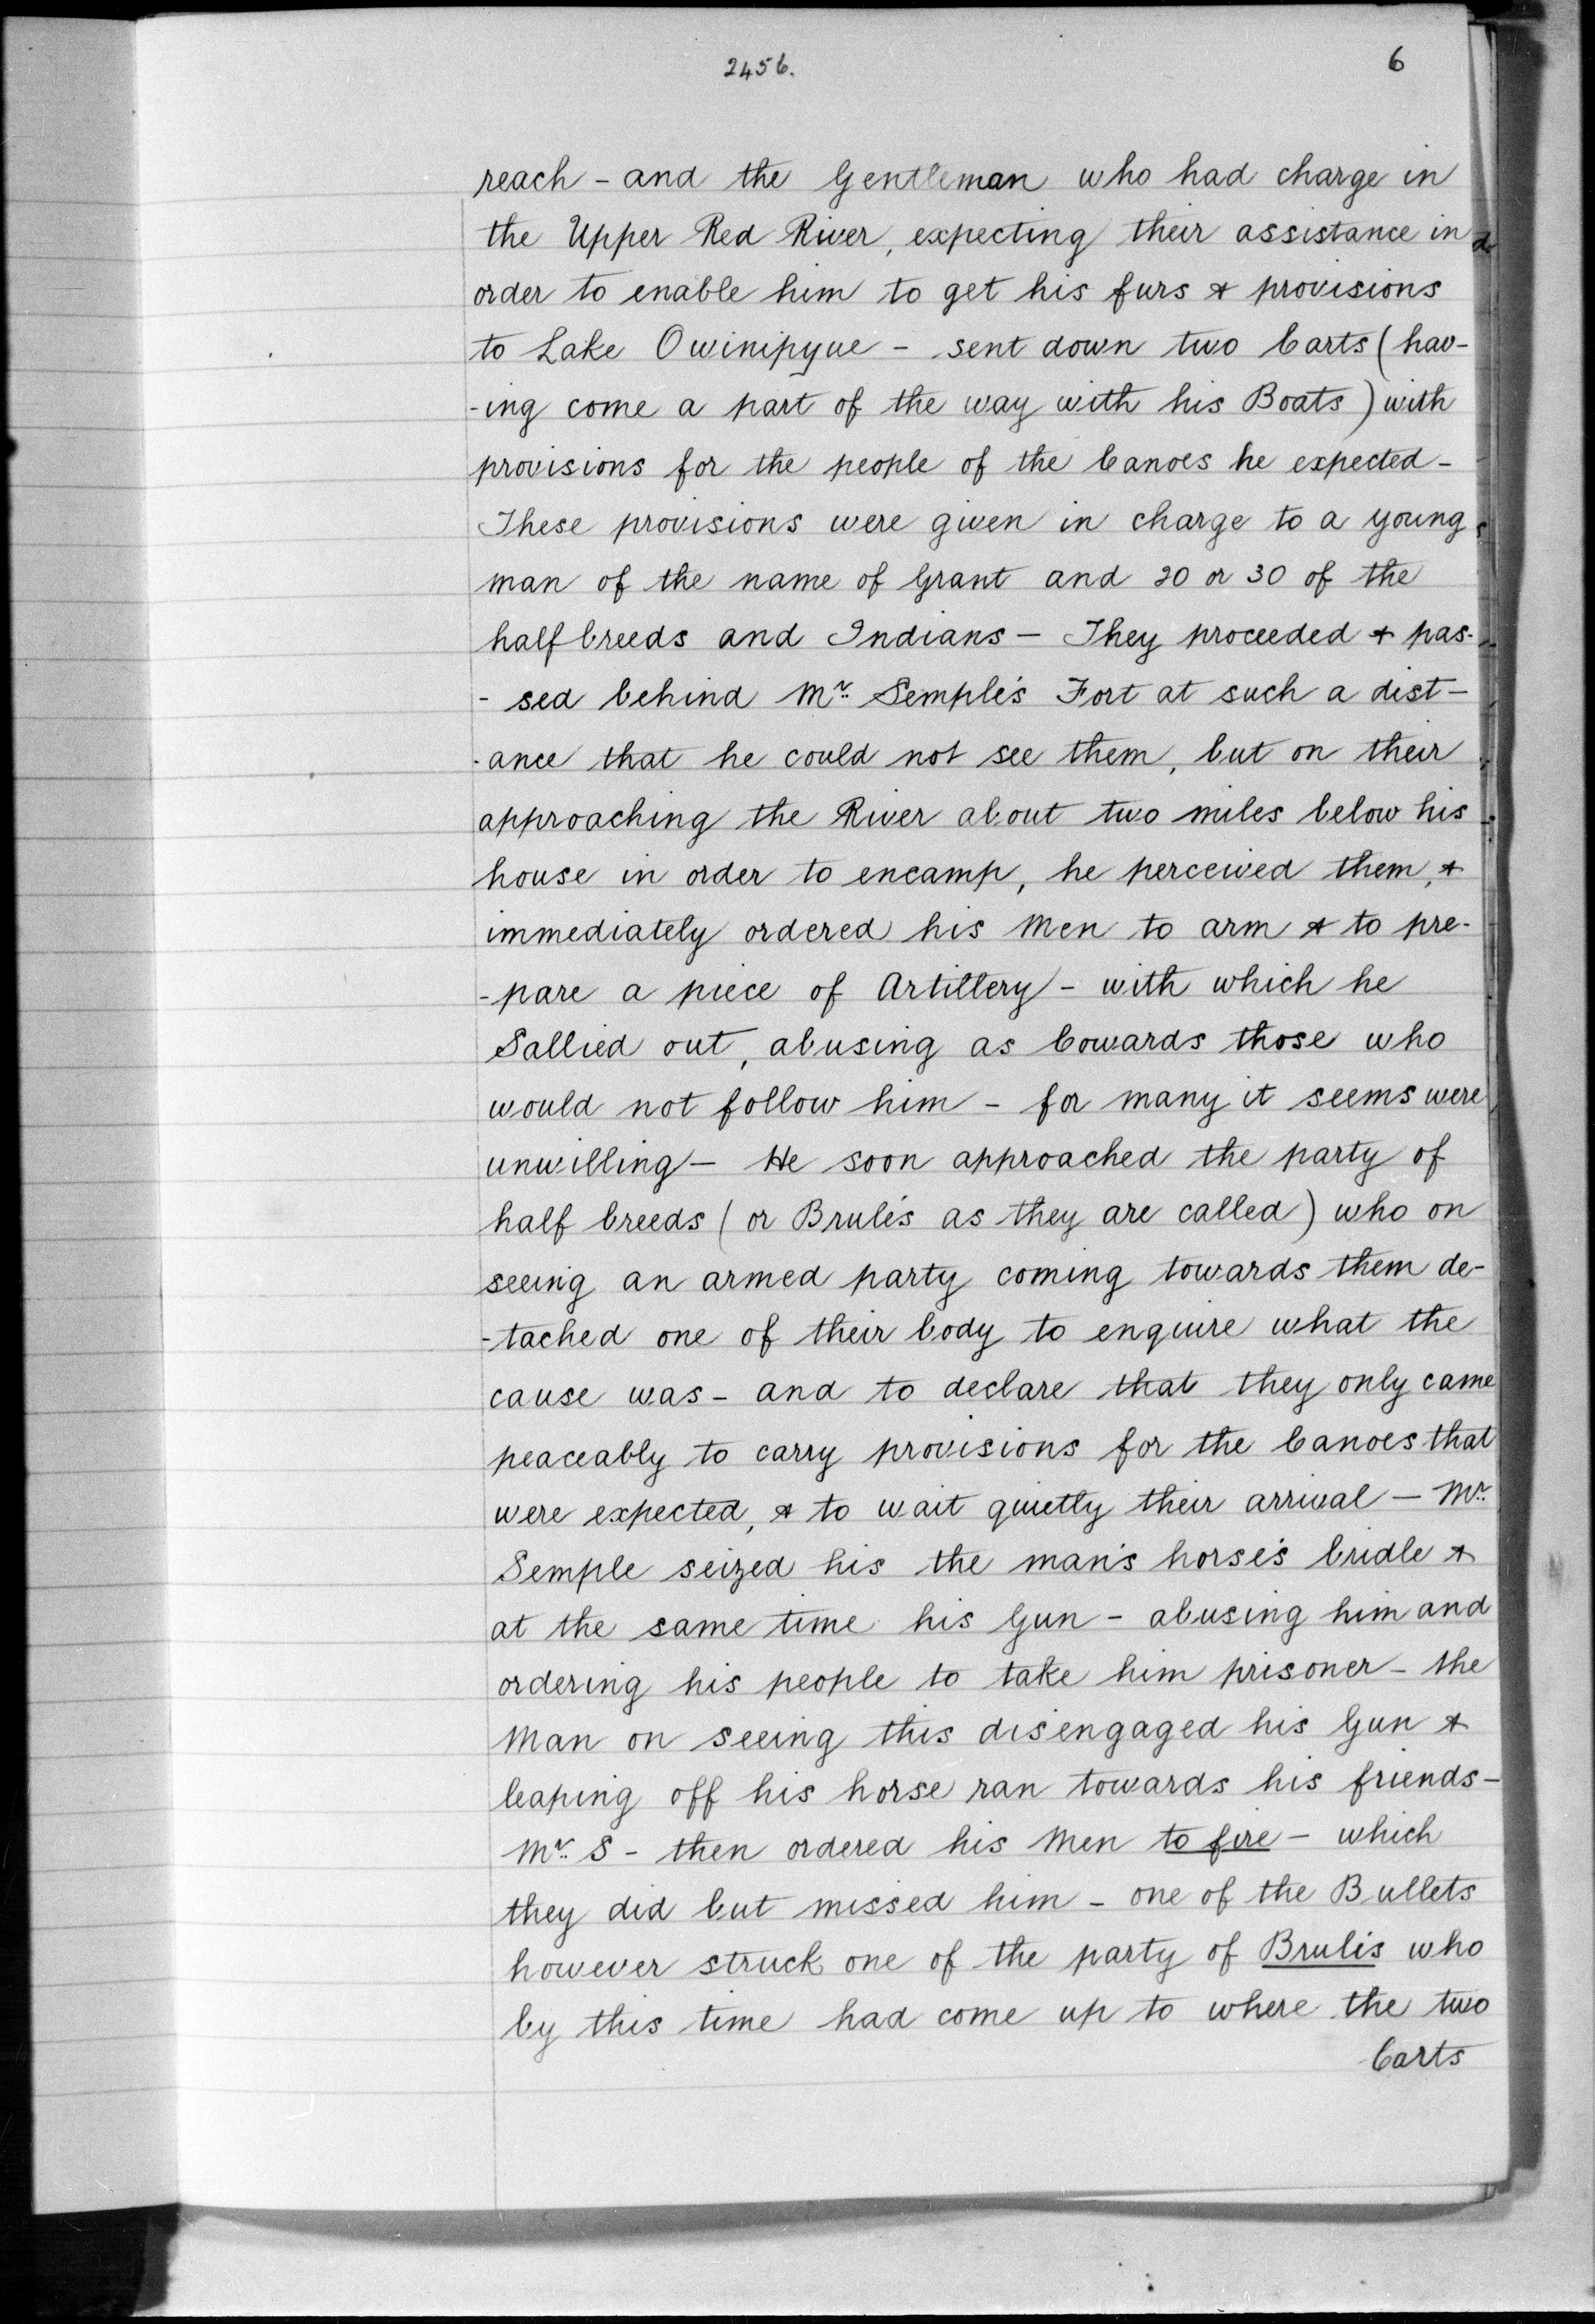 2456.
6
reach - and the Gentleman who had charge in
the Upper Red River, expecting their assistance in
order to enable him to get his furs & provisions
to Lake Owinipyue - sent down two Carts (hav-
-ing come a part of the way with his Boats) with
provisions for the people of the Canoes he expected -
These provisions were given in charge to a young
man of the name of Grant and 20 or 30 of the
half breeds and Indians - They proceeded & pas-
- sed behind Mr. Semple's Fort at such a dist-
-ance that he could not see them, but on their
approaching the River about two miles below his
house in order to encamp, he perceived them, &
immediately ordered his Men to arm & to pre-
-pare a piece of Artillery - with which he
Sallied out, abusing as Cowards those who
would not follow him - for many it seems were
unwilling - He soon approached the party of
half breeds (or Brulés as they are called) who on
seeing an armed party coming towards them de-
-tached one of their body to enquire what the
cause was - and to declare that they only came
peaceably to carry provisions for the Canoes that
were expected, & to wait quietly their arrival - Mr.
Semple seized his the man's horse's bridle &
at the same time his Gun - abusing him and
ordering his people to take him prisoner - the
Man on seeing this disengaged his Gun &
leaping off his horse ran towards his friends -
Mr. S - then ordered his Men to fire - which
they did but missed him - one of the Bullets
however struck one of the party of Brulis who
by this time had come up to where the two
Carts